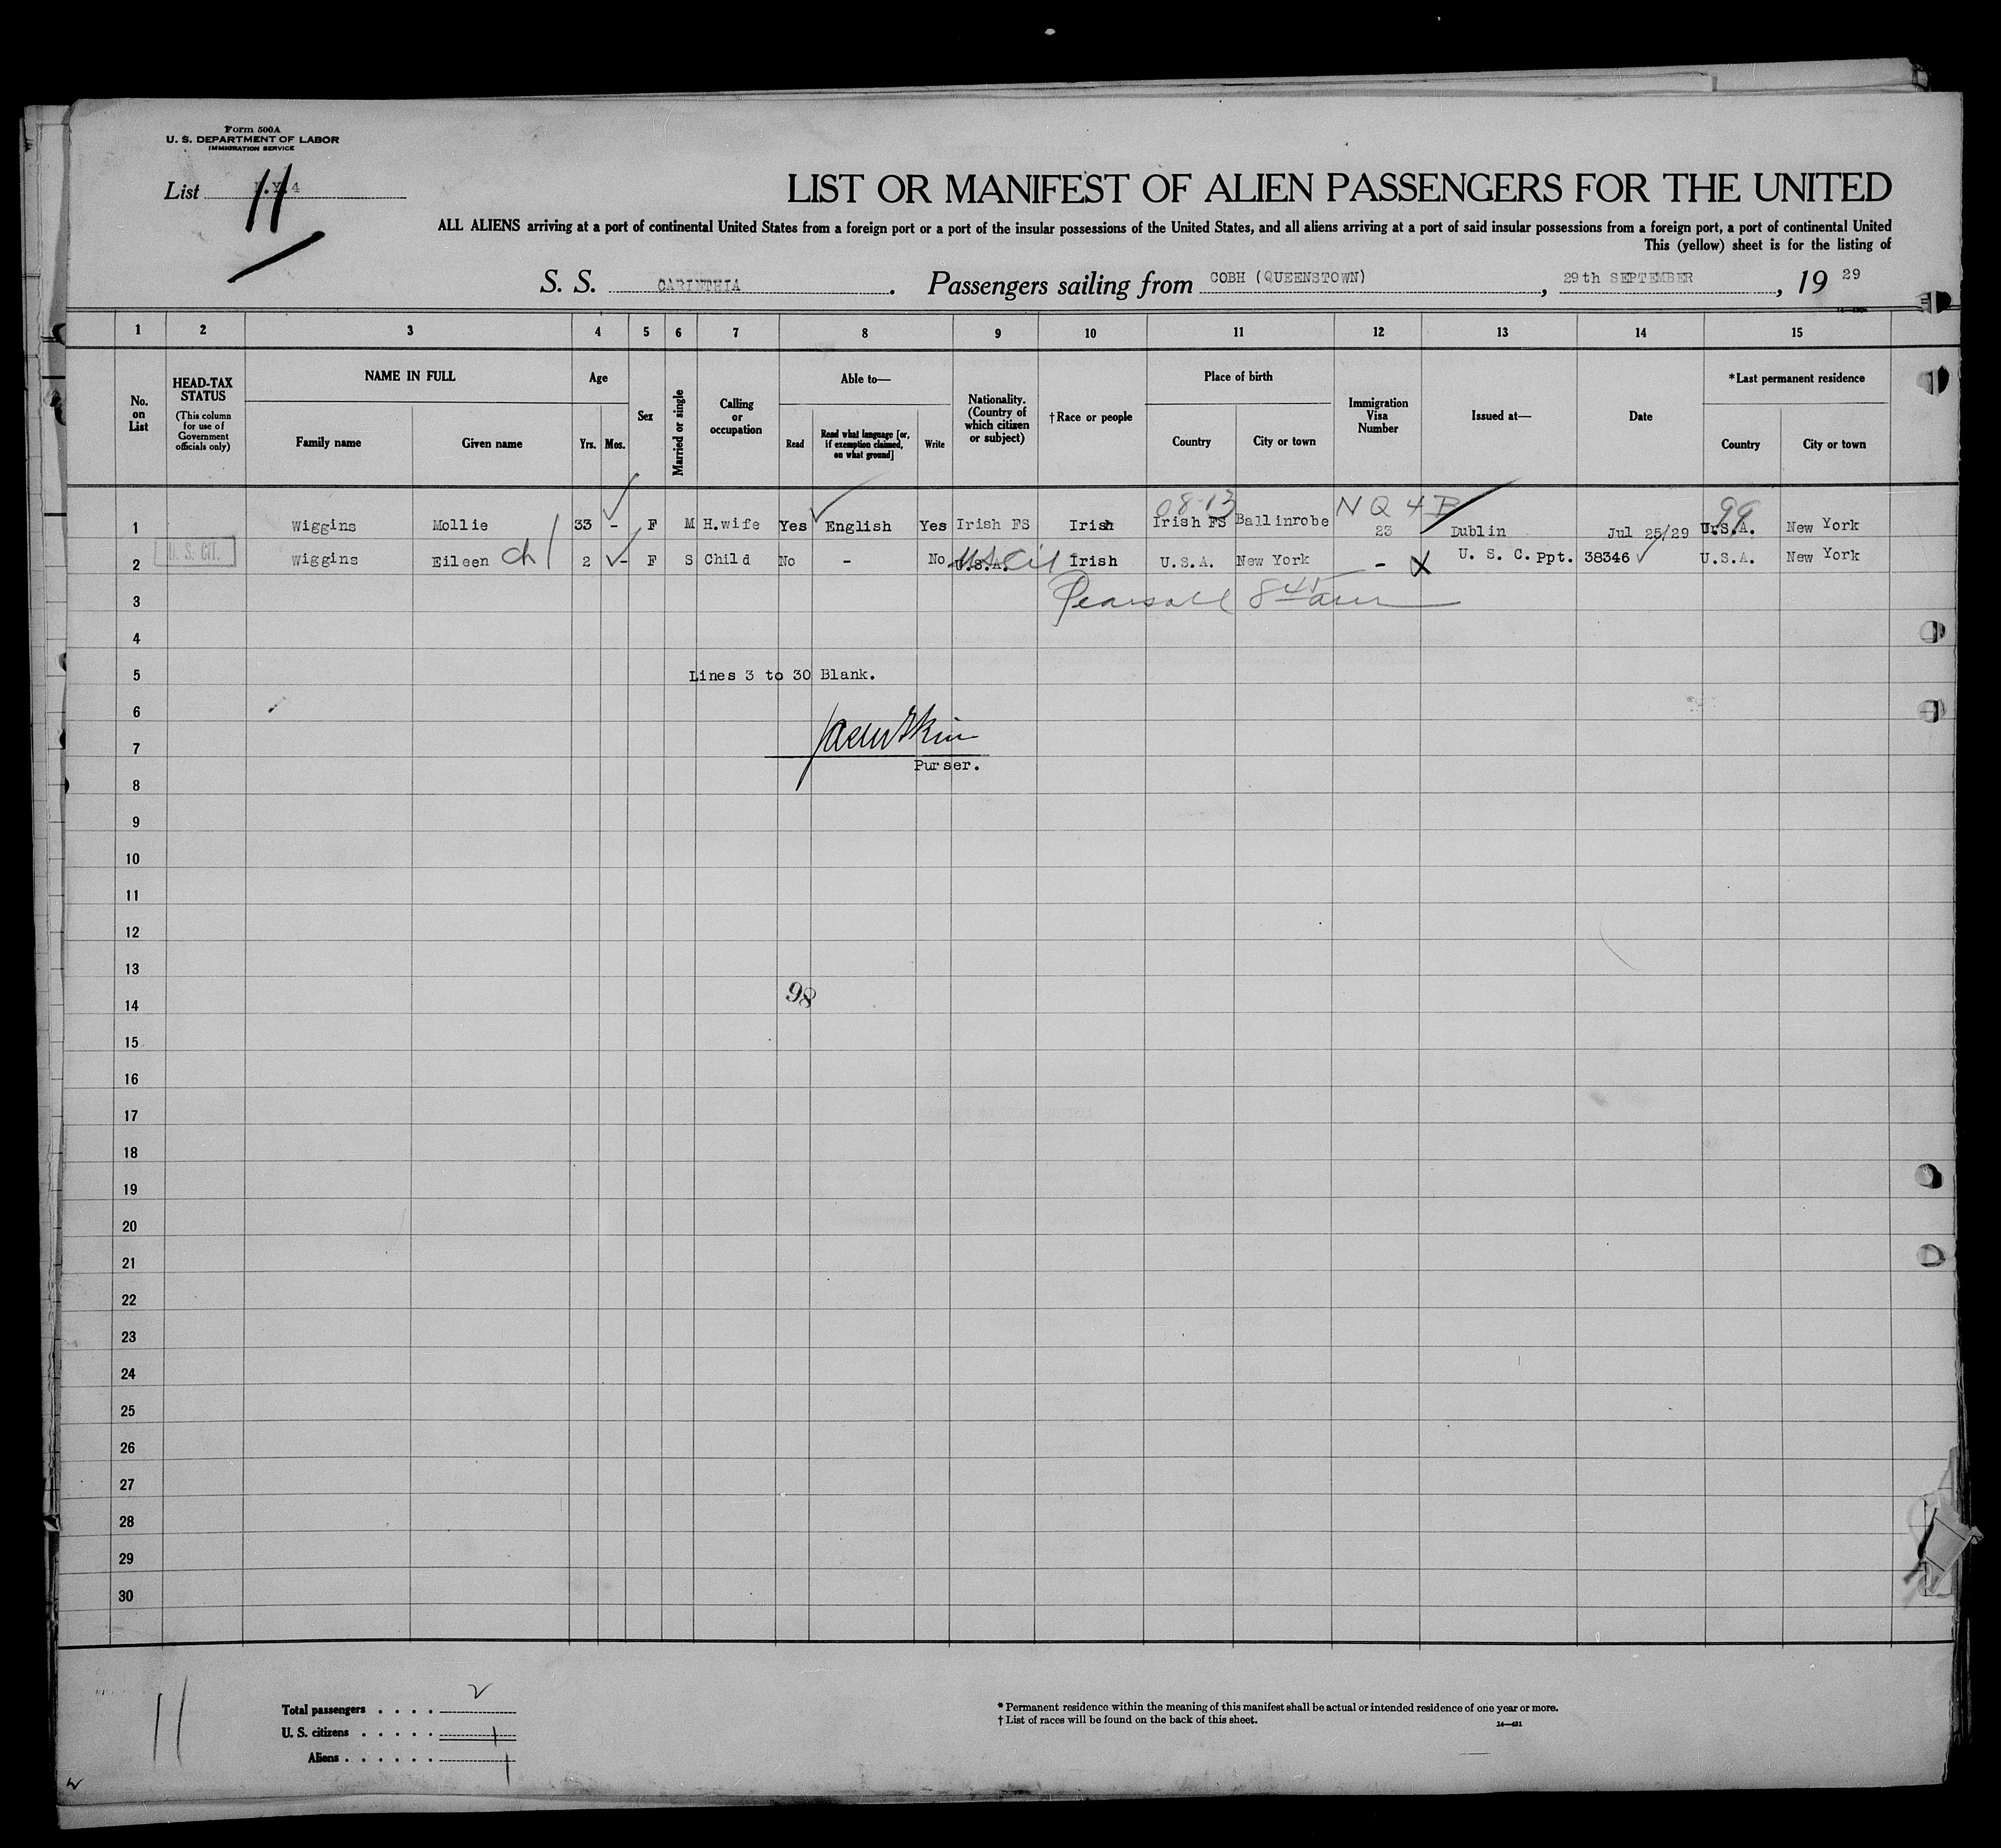 Form 500A
U. S. DEPARTMENT OF LABOR
IMMIGRATION SERVICE
List 11
LIST OR MANIFEST OF ALIEN PASSENGERS FOR THE UNITED
ALL ALIENS arriving at a port of continental United States from a foreign port or a port of the insular possessions of the United States, and all aliens arriving at a port of said insular possessions from a foreign port, a port of continental United
This (yellow) sheet is for the listing of
S. S. CARINTHIA. Passengers sailing from COBH (QUEENSTOWN), 29th SEPTEMBER, 19 29
1 2 3 4 5 6 7 8 9 10 11 12 13 14 15
No. on List
HEAD-TAX STATUS
(This column for use of Government officials only)
NAME IN FULL
Family name Given name
Age
Yrs. Mos.
Sex
Married or single
Calling or occupation
Able to—
Read
Read what language [or, if exemption claimed, on what ground]
Write
Nationality. (Country of which citizen or subject)
†Race or people
Place of birth
Country City or town
Immigration Visa Number
Issued at—
Date
*Last permanent residence
Country City or town
08-13 N Q 4 99
1 Wiggins Mollie 33 - F M H.wife Yes English Yes Irish FS Irish Irish FS Ballinrobe 23 Dublin Jul 25/29 U.S.A. New York
2 U. S. CIT. Wiggins Eileen ch 2 - F S Child No - No U.S.A. US Cit Irish U.S.A. New York - X U. S. C. Ppt. 38346 U.S.A. New York
3 Pearsall 8 45
4
5 Lines 3 to 30 Blank.
6
7
Purser.
8
9
10
11
12
13
98
14
15
16
17
18
19
20
21
22
23
24
25
26
27
28
29
30
11
Total passengers . . . . 2
U. S. citizens . . . . . 1
Aliens . . . . . . 1
* Permanent residence within the meaning of this manifest shall be actual or intended residence of one year or more.
† List of races will be found on the back of this sheet.
14—431